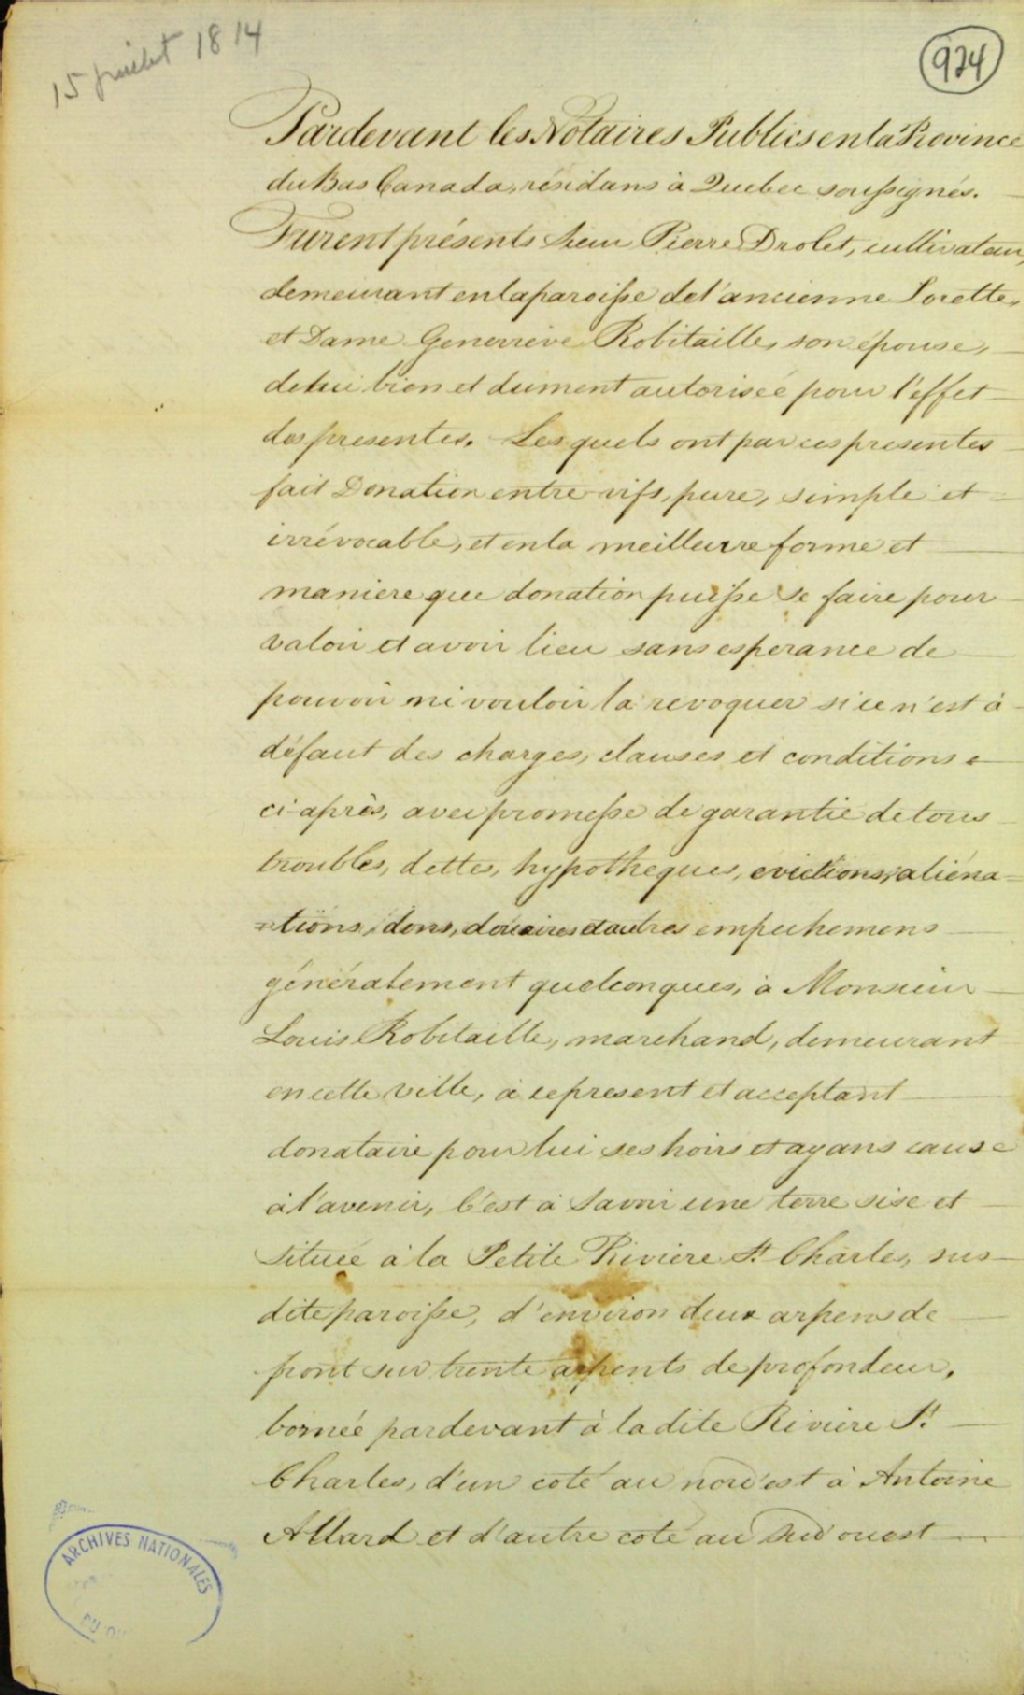 15 juillet 1814
924
Pardevant les Notaires Publics en la Province
du Bas Canada, résidans à Quebec soussignés.
Furent présents Sieur Pierre Drolet, cultivateur,
demeurant en la paroisse de l'ancienne Lorette,
et Dame Genevieve Robitaille, son épouse,
de lui bien et dument autorisée pour l'effet
des presentes. Lesquels ont par ces presentes
fait Donation entre vifs, pure, simple et
irrévocable, et en la meilleure forme et
maniere que donation puisse se faire pour
valoir et avoir lieu sans esperance de
pouvoir ni vouloir la revoquer si ce n'est à
défaut des charges, clauses et conditions
ci-après, avec promesse de garantie de tous
troubles, dettes, hypotheques, evictions, aliéna=
=tions, dons, douaires et autres empechemens
généralement quelconques, à Monsieur
Louis Robitaille, marchand, demeurant
en cette ville, à ce present et acceptant
donataire pour lui ses hoirs et ayans cause
à l'avenir, C'est à Savoir une terre sise et
située à la Petite Riviere St. Charles, sus
dite paroisse, d'environ deux arpens de
front sur trente arpents de profondeur,
bornée pardevant à la dite Riviere St.
Charles, d'un coté au nord'est à Antoine
Allard et d'autre coté au Sud'ouest
ARCHIVES NATIONALES